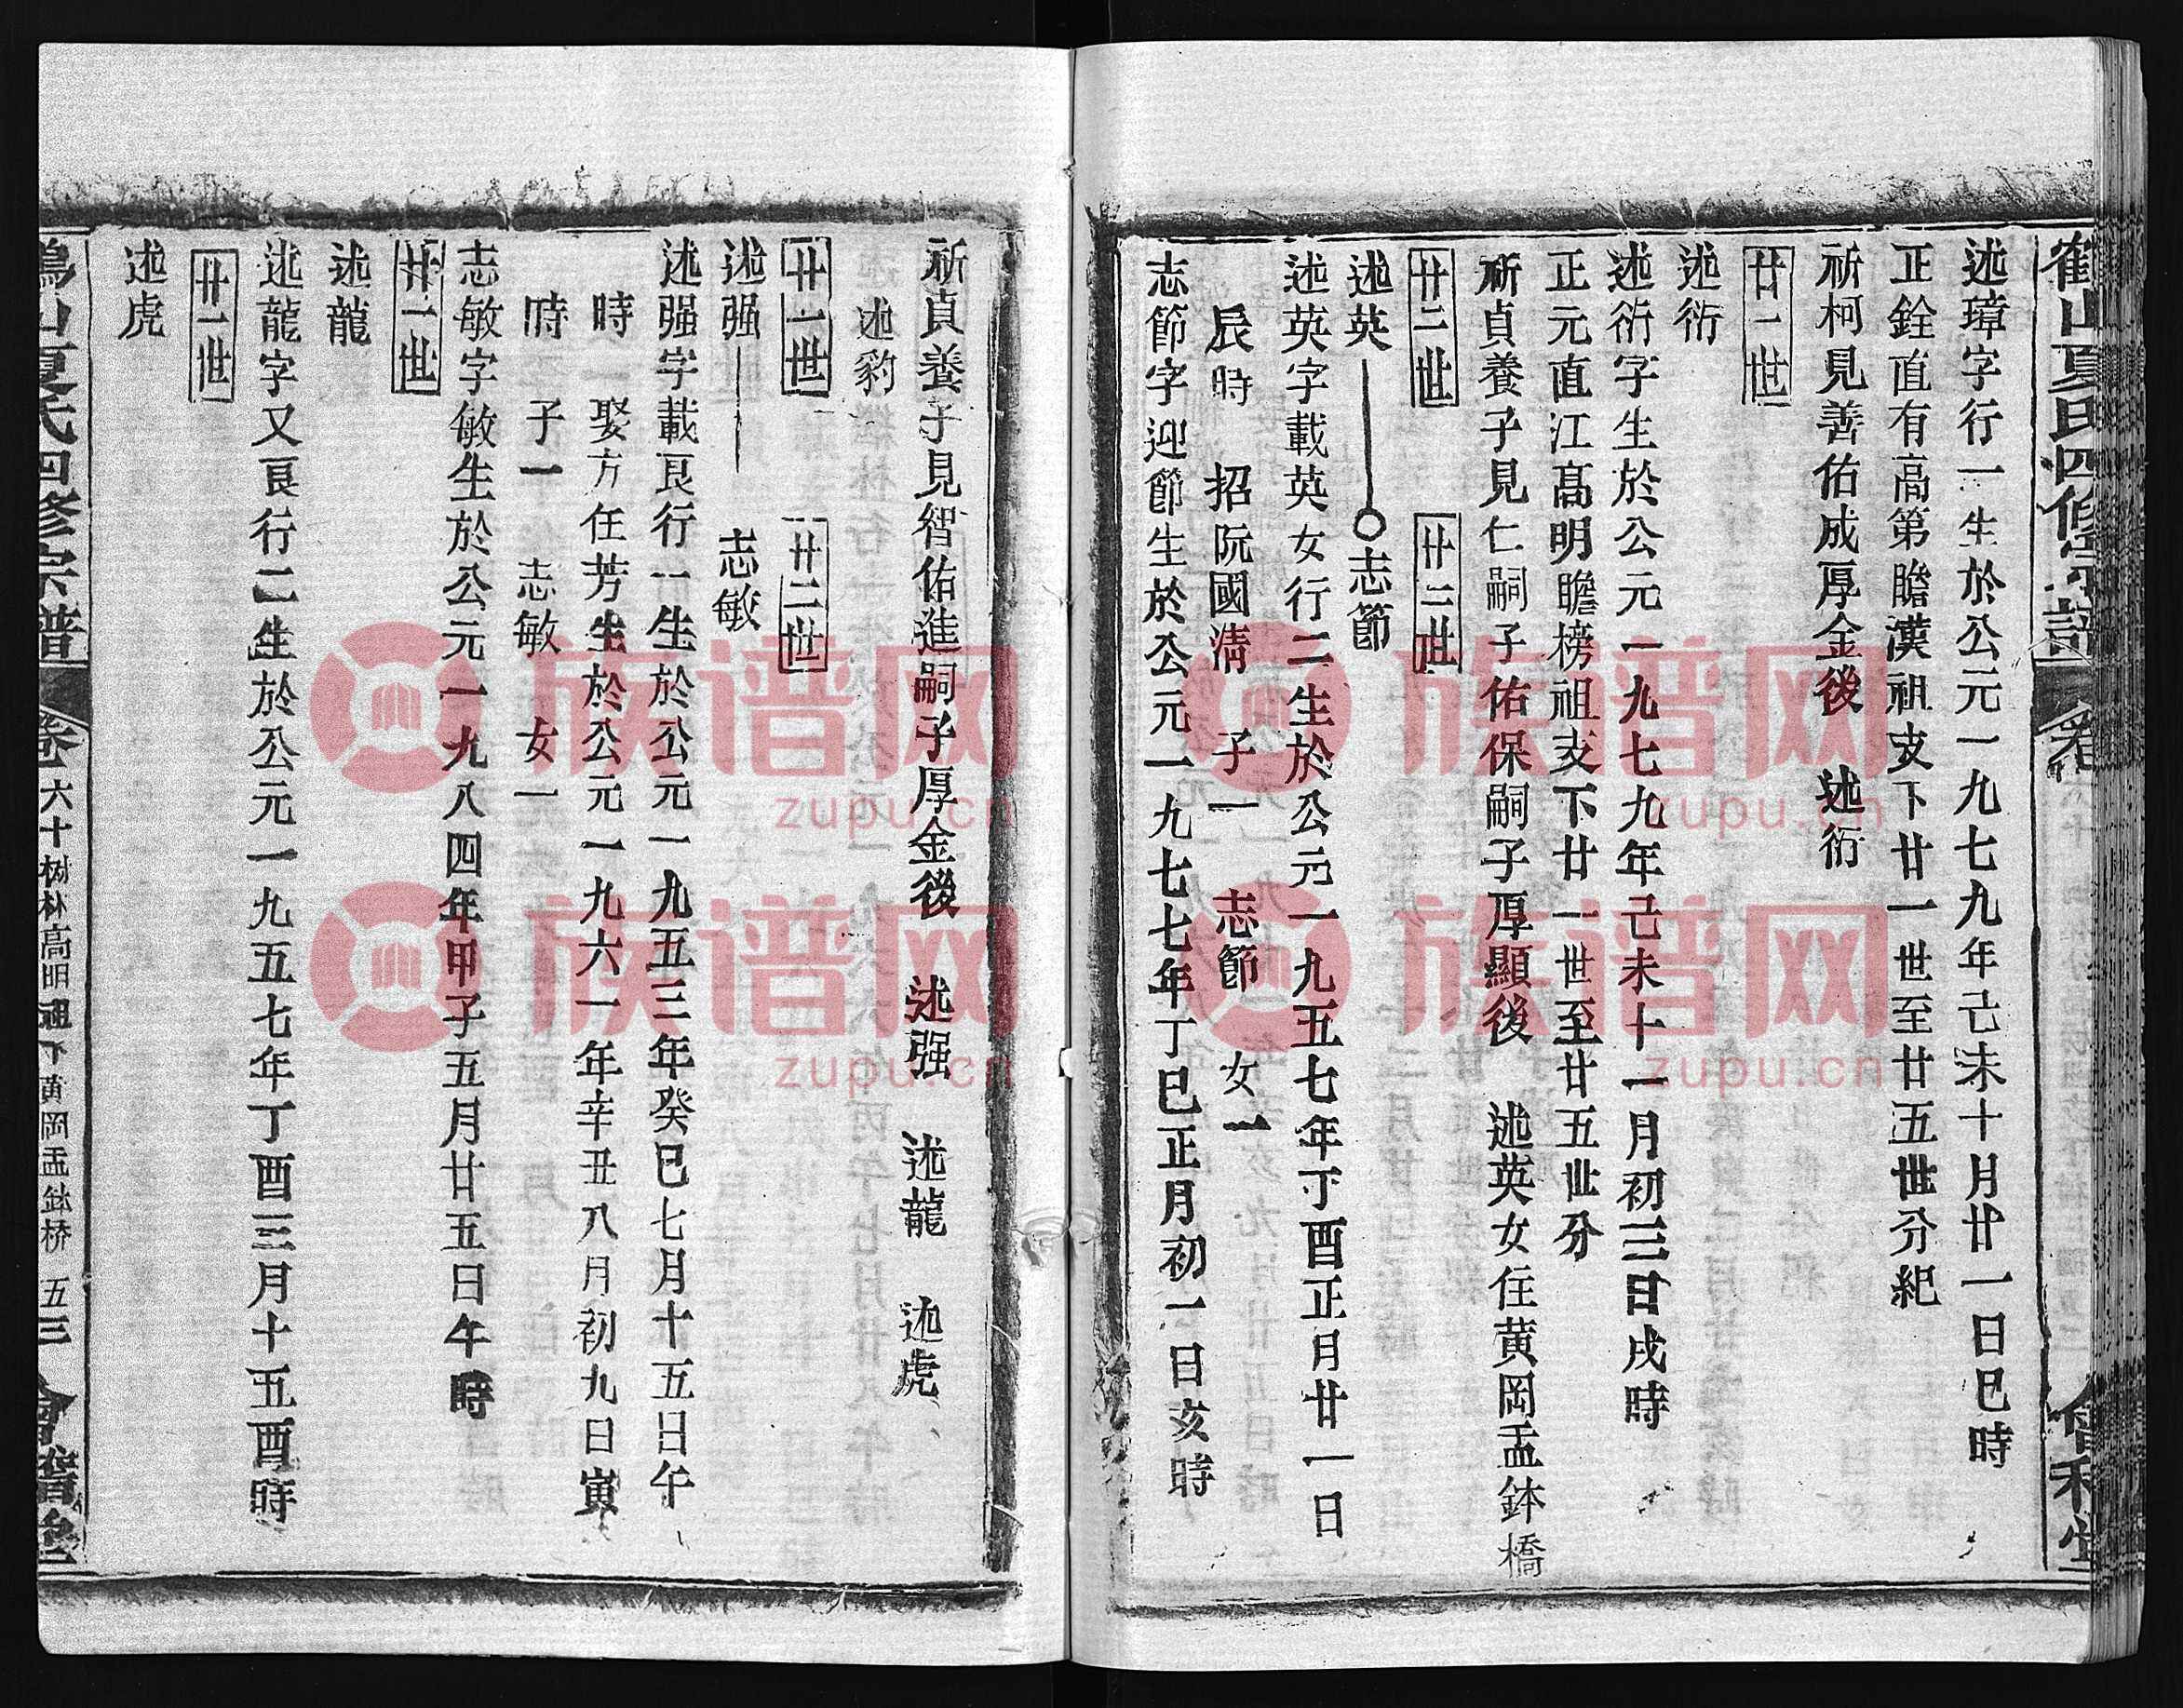 鶴山夏氏四修宗譜
述璋字行一生於公元一九七九年己未十月廿一日巳時
正銓直有高第瞻漢祖支下廿一世至廿五世分紀
祈柯見善佑成厚金後 述衍
廿一世
述衍
述衍字生於公元一九七九年己未十一月初三日戌時
正元直江高明瞻榜祖支下廿一世至廿五世分
祈貞養子見仁嗣子佑保嗣子厚顯後 述英女住黄岡盂鉢橋
廿二世 廿三世
述英 志節
述英字載英女行二生於公元一九五七年丁酉正月廿一日
辰時 招阮國清 子一 志節 女一
志節字迎節生於公元一九七七年丁巳正月初一日亥時
祈貞養子見智佑進嗣子厚金後 述强 述龍 述虎
述豹
廿一世 廿二世
述强 志敏
述强字載良行一生於公元一九五三年癸巳七月十五日午
時 娶方任芳生於公元一九六一年辛丑八月初九日寅
時 子一 志敏 女一
志敏字敏生於公元一九八四年甲子五月廿五日午時
廿一世
述龍
述龍字又良行二生於公元一九五七年丁酉三月十五酉時
廿一世
述虎
鶴山夏氏四修宗譜 卷六十樹林高明祖下黄岡盂鉢桥 五三 會稽堂
族谱网
zupu.cn
族谱网
zupu.cn
族谱网
zupu.cn
族谱网
zupu.cn